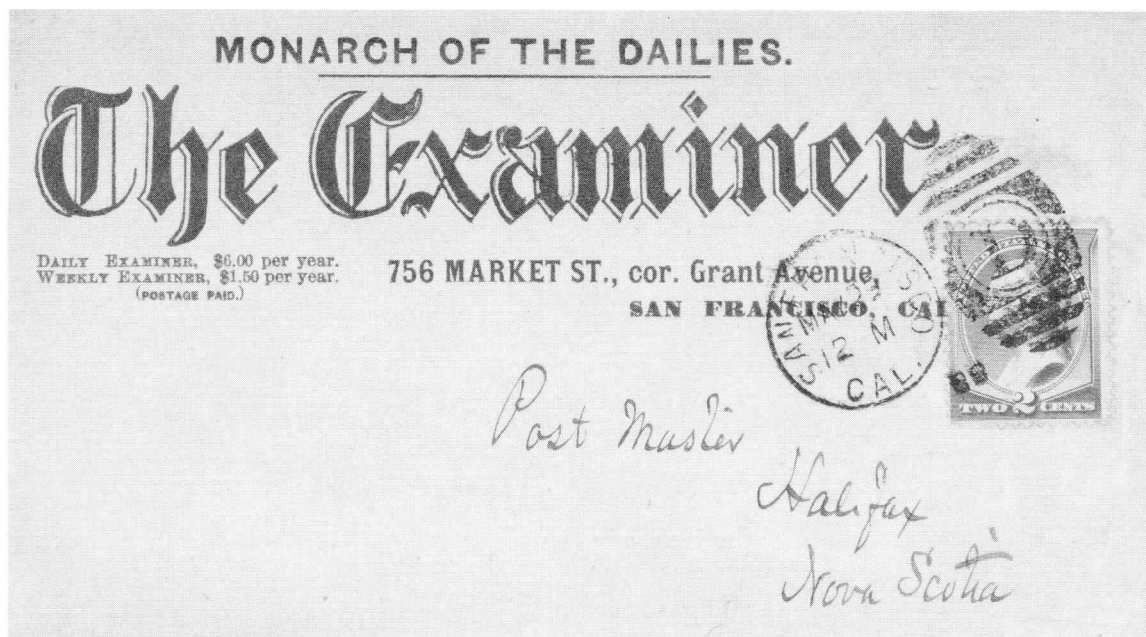 MONARCH OF THE DAILIES.
The Examiner
DAILY EXAMINER, $6.00 per year.
WEEKLY EXAMINER, $1.50 per year.
(POSTAGE PAID.)
756 MARKET ST., cor. Grant Avenue,
SAN FRANCISCO, CAL
SAN FRANCISCO
12 M
CAL.
TWO 2 CENTS
Post Master
Halifax
Nova Scotia